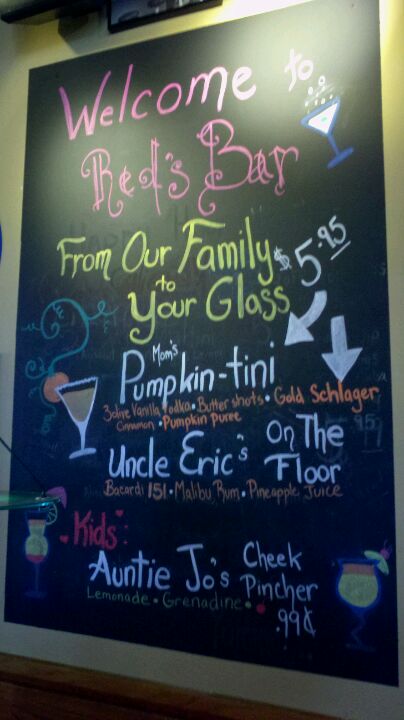 Welcome to
Red's Bar
From Our Family $5.95
to
Your Glass
Mom's
Pumpkin-tini
3 olive Vanilla Vodka • Butter shots • Gold Schlager
Cinnamon • Pumpkin Puree
Uncle Eric's On The
Floor
Bacardi 151 • Malibu Rum • Pineapple Juice
Kids:
Auntie Jo's Cheek
Pincher
Lemonade • Grenadine •
.99¢